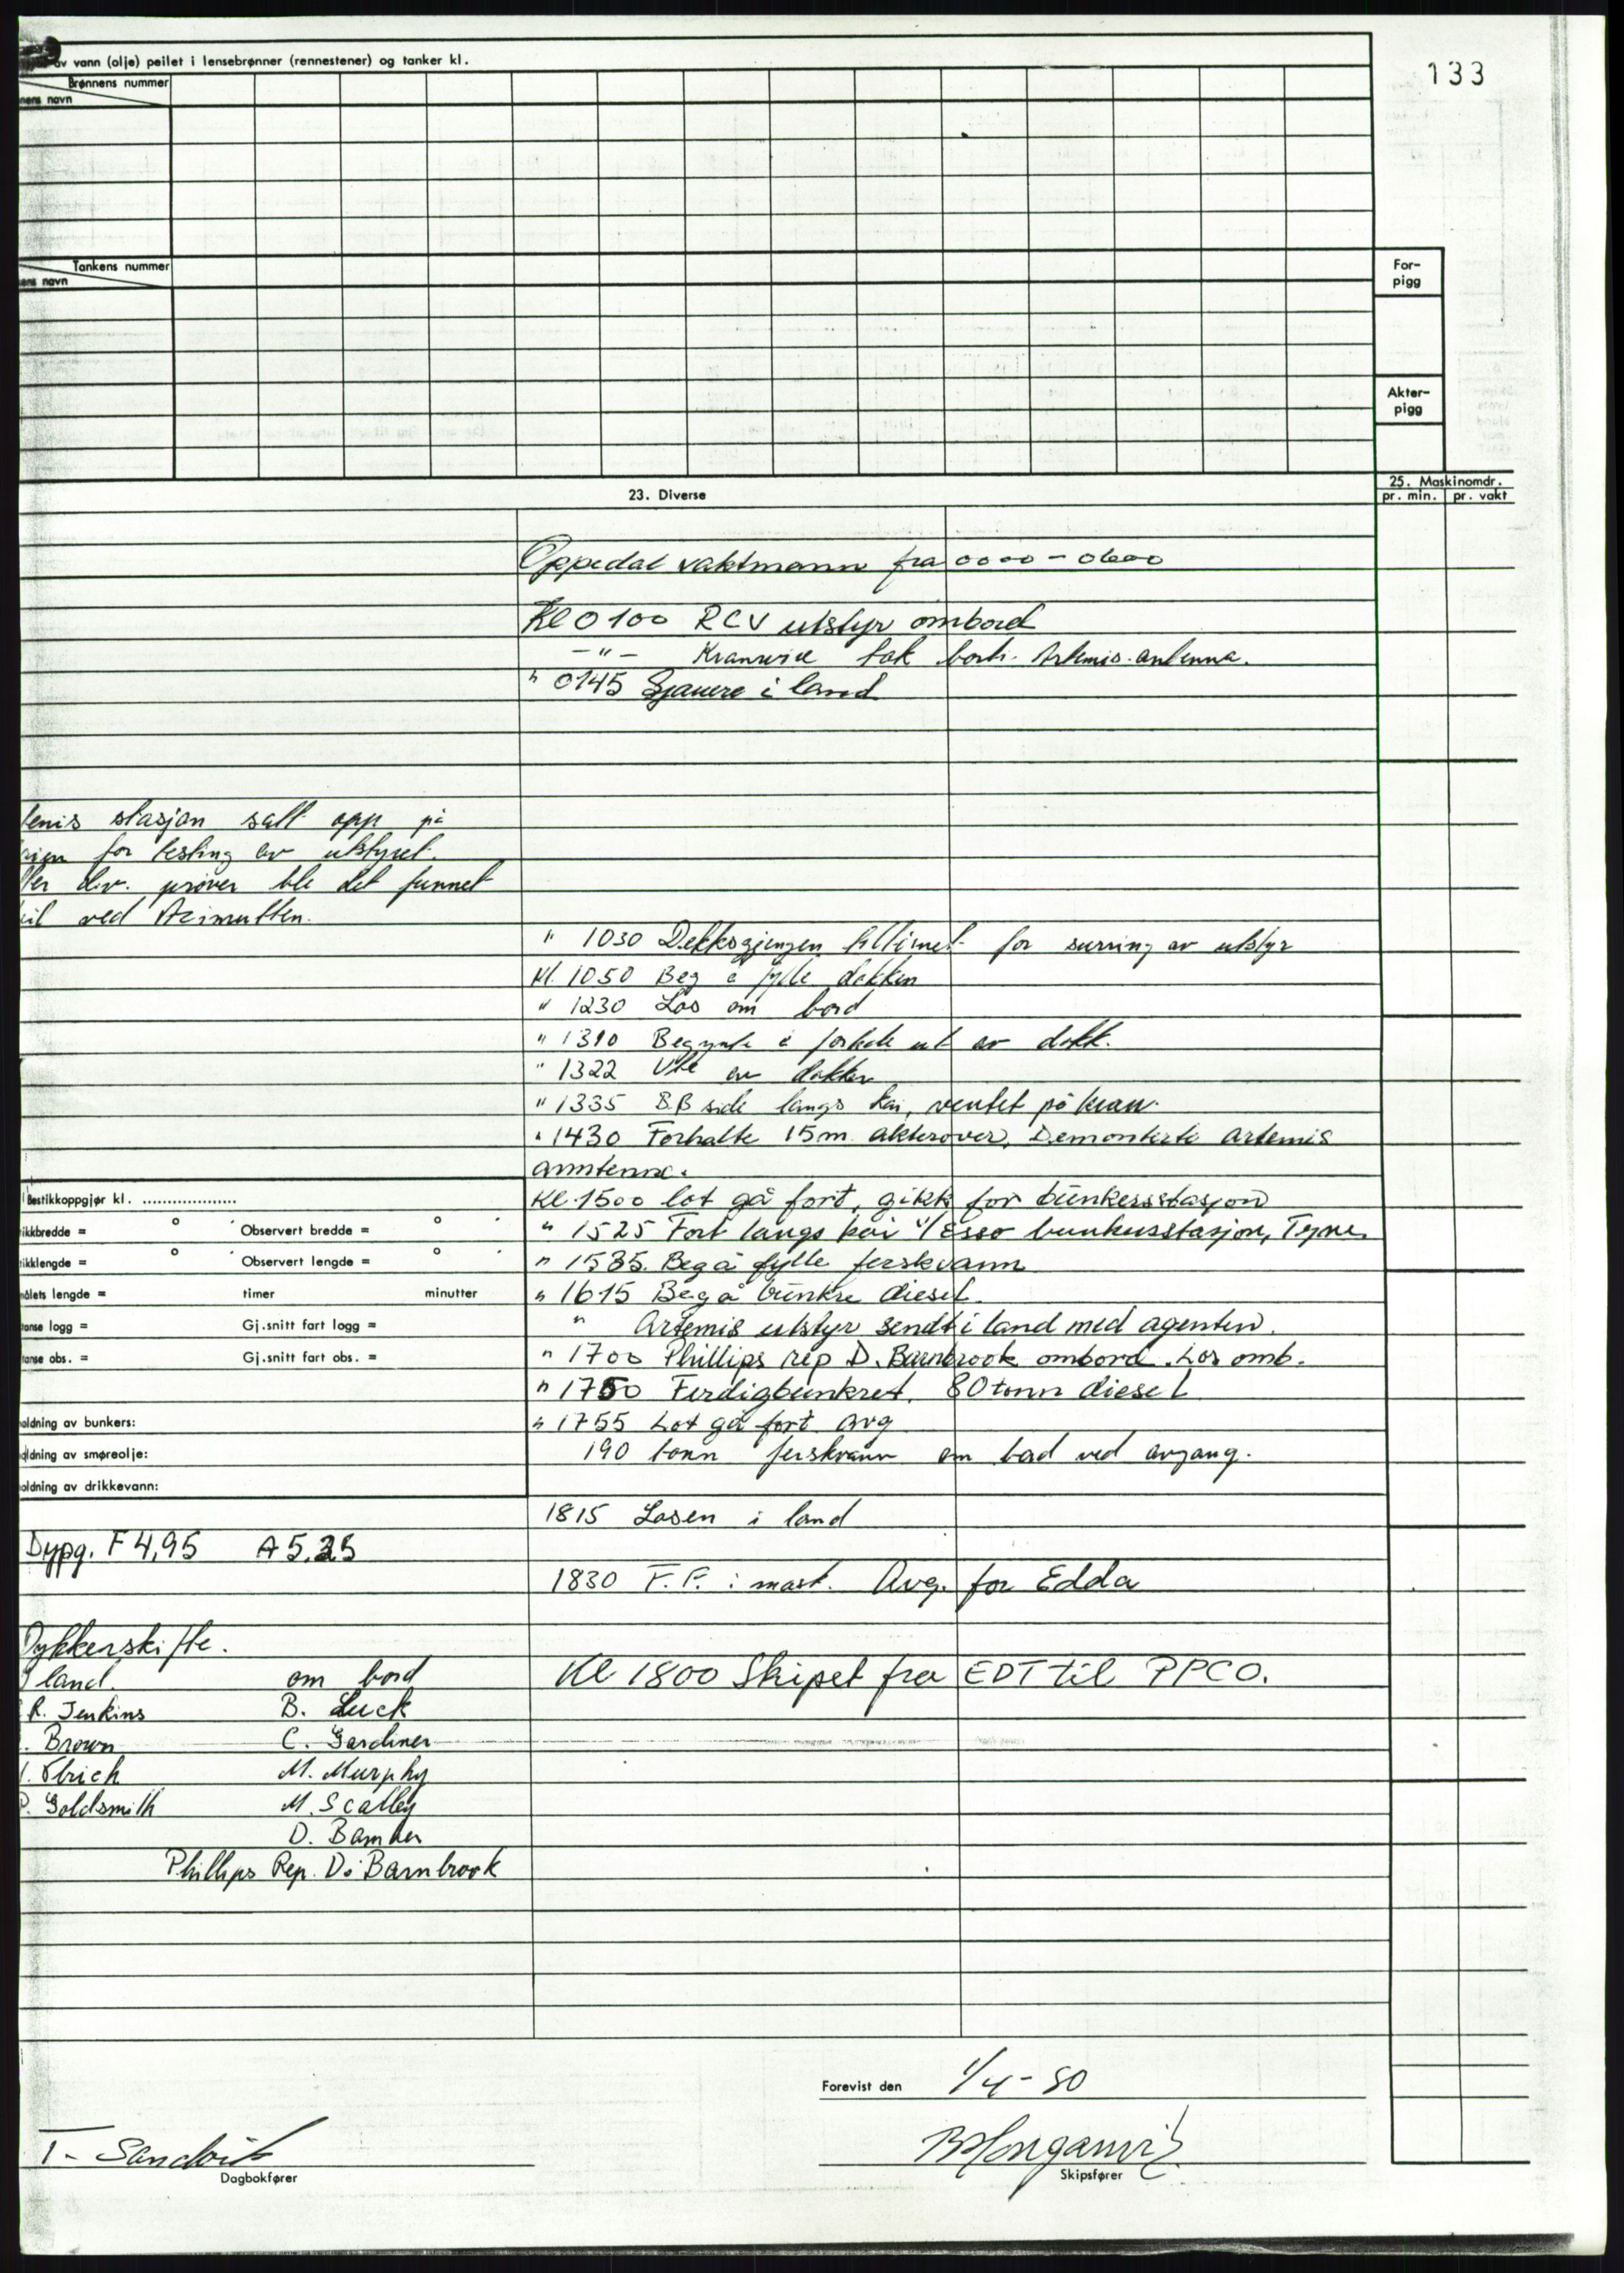 133
av vann (olje) peilet i lensebrønner (rennestener) og tanker kl.
Brønnens nummer
nens navn
Tankens nummer
ens navn
For-
pigg
Akter-
pigg
23. Diverse
25. Maskinomdr.
pr. min. pr. vakt
Oppedal vaktmann fra 0000 - 0600
Kl 0100 RCV utstyr ombord
-"- tok bort Artemis antenna.
" 0145 Sjauere i land
temis stasjon satt opp på
for testing av utstyret.
ter div. prøver ble det funnet
eil ved Azimutten.
" 1030 Dekksgjengen tilkimet for surring av utstyr
Kl. 1050 Beg å fylle dokken
" 1230 Los om bord
" 1310 Begynte å forhale ut av dokk.
" 1322 Ute av dokken
" 1335 BB side langs kai, ventet på kran.
" 1430 Forhalte 15m akterover, Demonterte artemis
anntenne.
Bestikkoppgjør kl. ...................
Kl 1500 lot gå fort, gikk for bunkersstasjon
ikkbredde = ° ´ Observert bredde = ° ´
" 1525 Fort langs kai v/ Esso bunkersstasjon, Tyne.
ikklengde = ° ´ Observert lengde = ° ´
" 1535 Beg å fylle ferskvann
ålets lengde = timer minutter
" 1615 Beg å bunkre diesel.
anse logg = Gj.snitt fart logg =
" Artemis utstyr sendt i land med agenten.
anse obs. = Gj.snitt fart obs. =
" 1700 Phillips rep D. Barnbrook ombord. Los omb.
" 1750 Ferdigbunkret. 80 tonn diesel
oldning av bunkers:
" 1755 Lot gå fort avg
oldning av smøreolje:
190 tonn ferskvann om bord ved avgang.
oldning av drikkevann:
1815 Losen i land
Dypg. F 4,95 A 5,25
1830 F.F. i mask. Avg. for Edda
Dykkerskifte.
I land. om bord
Kl 1800 Skipet fra EDT til PPCO.
R. Jenkins B. Luck
. Brown C. Gardiner
. Ulrich M. Murphy
P. Goldsmith M. Scalley
D. Bamber
Phillips Rep. D. Barnbrook
Forevist den 1/4-80
T. Sandvik
Dagbokfører
Skipsfører